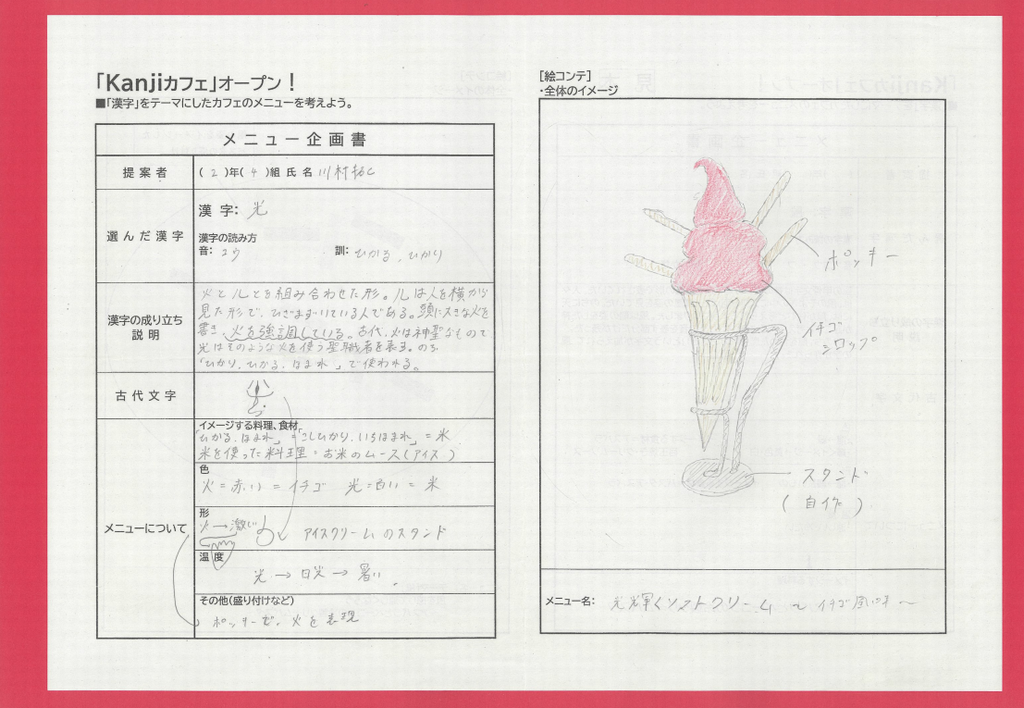 「Kanjiカフェ」オープン！
■「漢字」をテーマにしたカフェのメニューを考えよう。
メニュー企画書
提案者
(2)年(4)組 氏名 川村
選んだ漢字
漢字: 光
漢字の読み方
音: コウ 訓: ひかる、ひかり
漢字の成り立ち
説明
火と儿とを組み合わせた形。儿は人を横から
見た形で、ひざまずいている人である。頭に大きな火を
書き、火を強調している。古代、火は神聖なもので
光はそのような火を使う聖職者を表す。のち
「ひかり、ひかる、ほまれ」で使われる。
古代文字
メニューについて
イメージする料理、食材
「ひかる、ほまれ」=「こしひかり、いちほまれ」=米
米を使った料理・お米のムース(アイス)
色
火=赤い=イチゴ 光=白い=米
形
火→激しい
アイスクリームのスタンド
温度
光→日光→暑い。
その他(盛り付けなど)
ポッキーで、火を表現
[絵コンテ]
・全体のイメージ
ポッキー
イチゴ
シロップ
スタンド
(自作)
メニュー名: 光輝くソフトクリーム 〜イチゴ風味〜